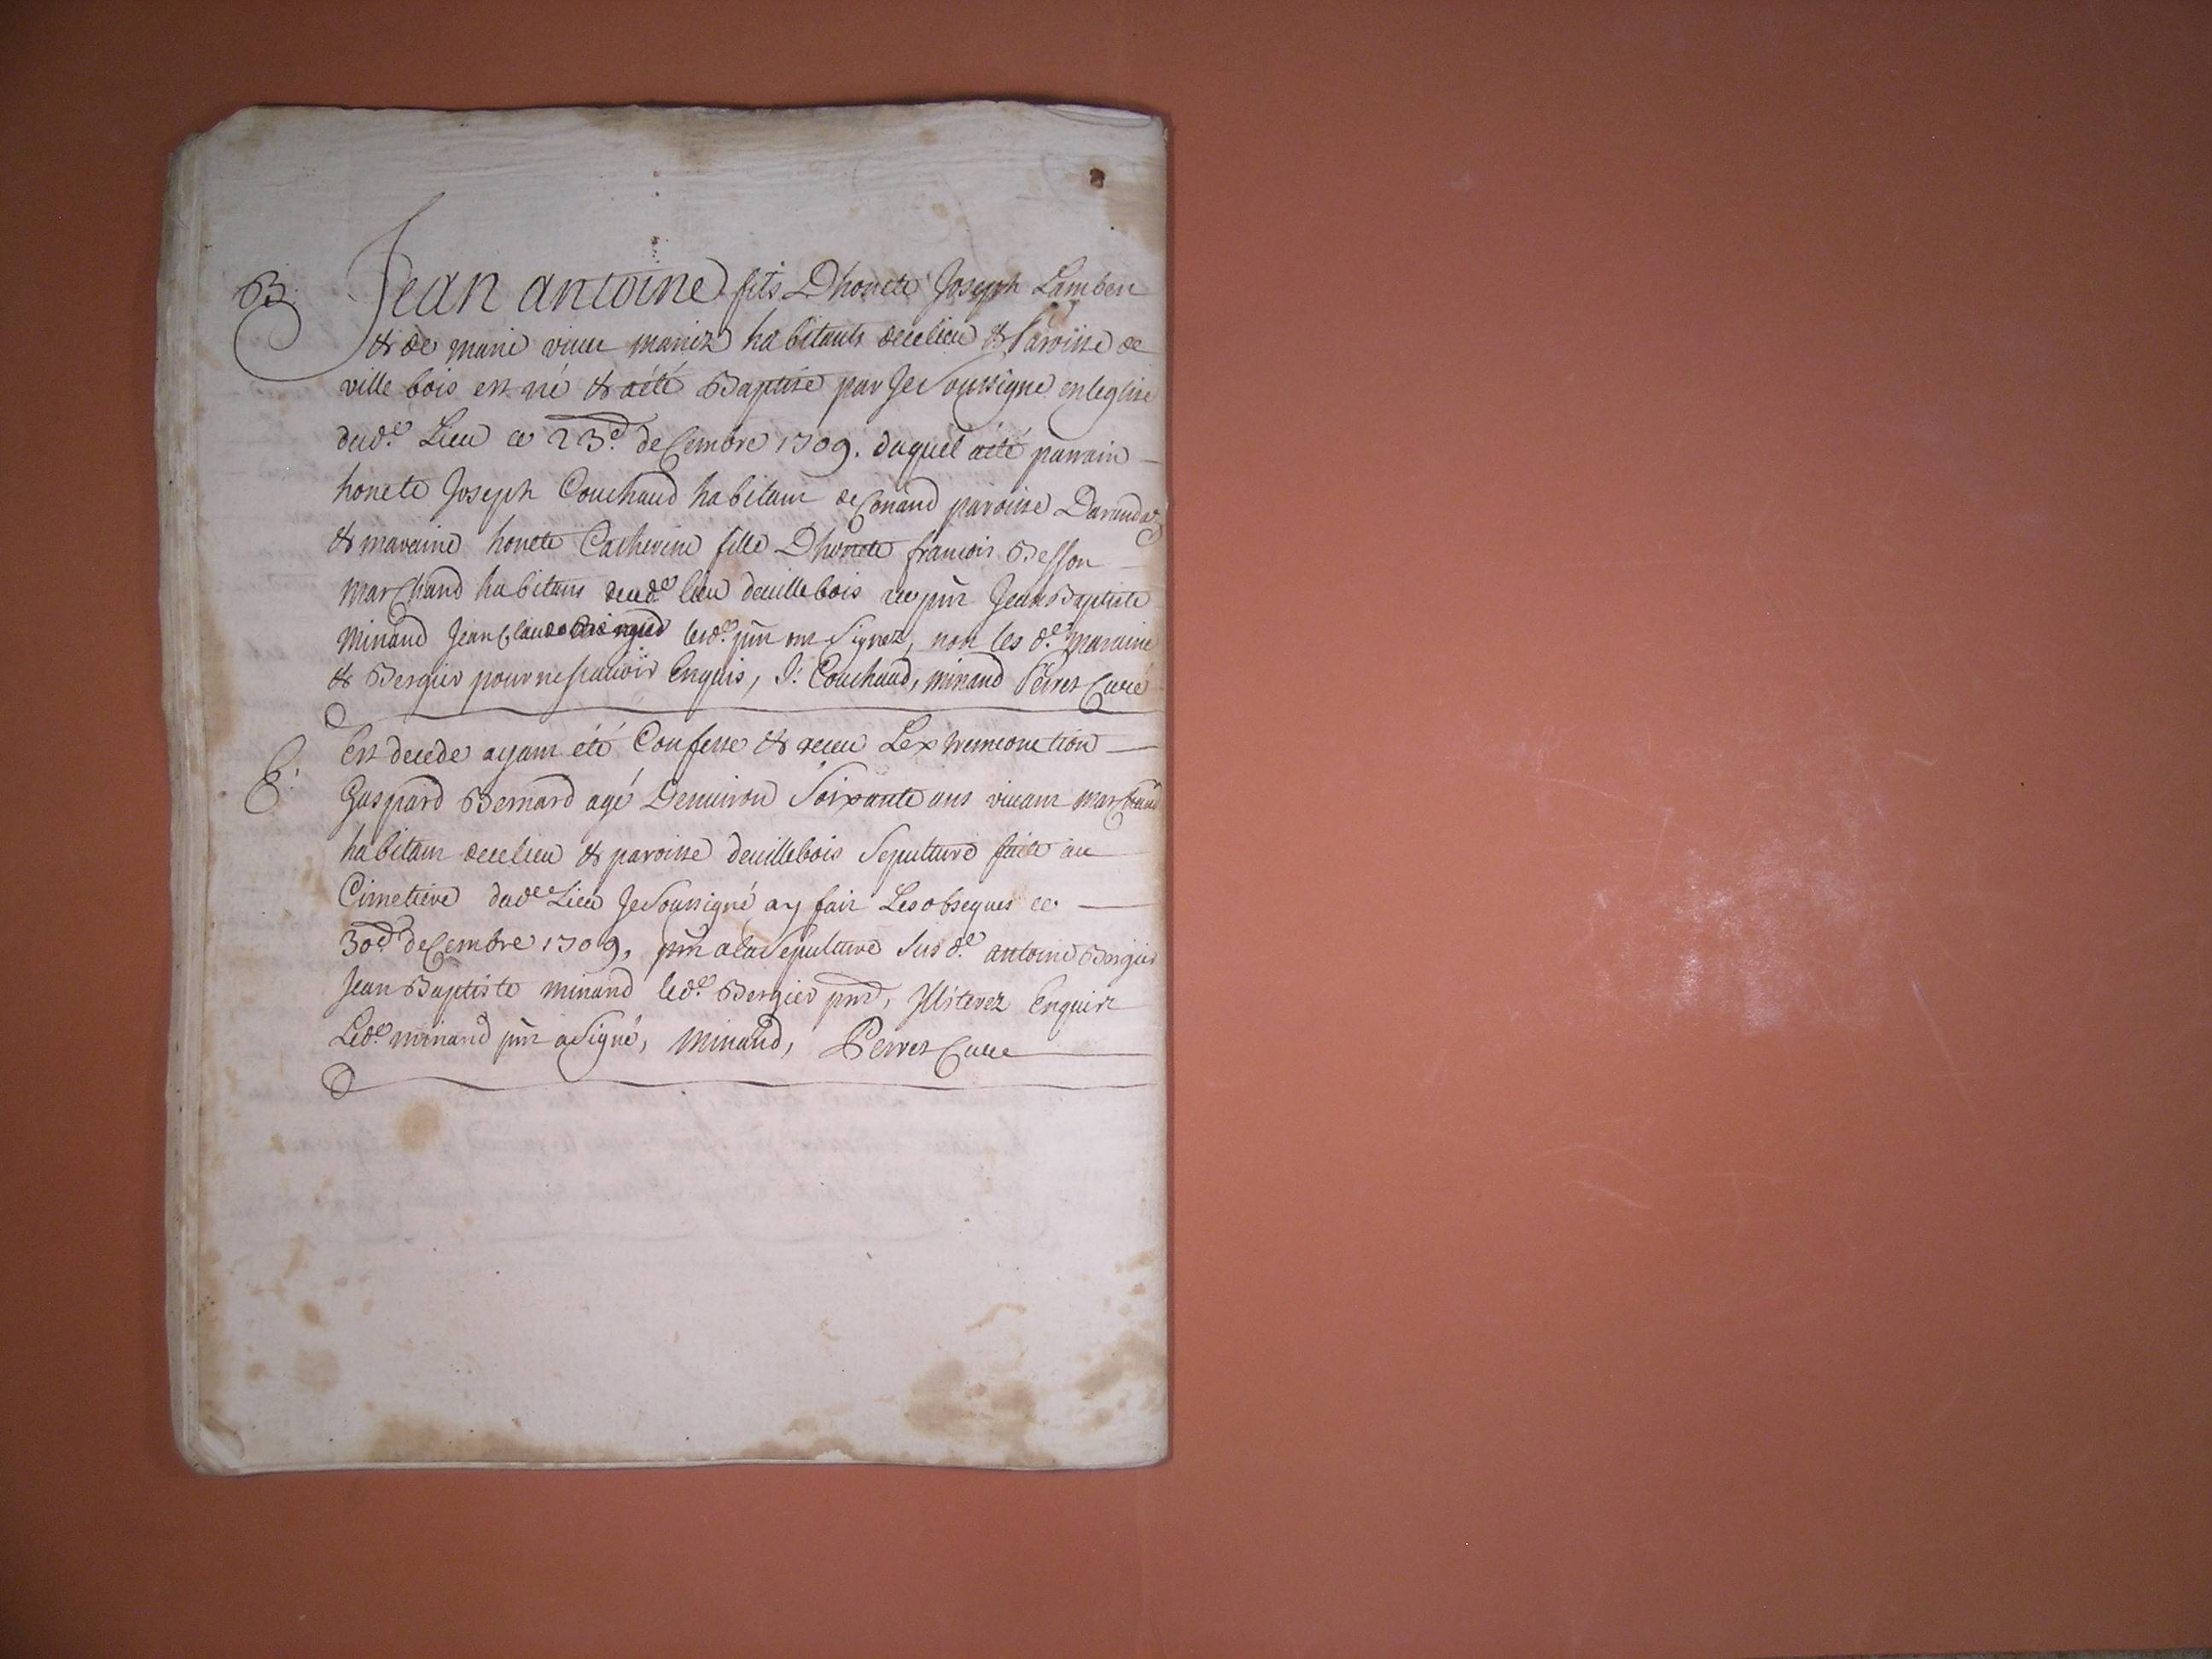 B. Jean antoine fils Dhonete Joseph Lambert
& de marie viuer mariez habitants decelieu & Paroisse de
ville bois est né & aété Baptise par Je Soussigné en leglise
dud.e Lieu ce 23.e deCembre 1709. duquel aété parrain
honete Joseph Couchaud habitant de Conand paroisse Darandaz
& maraine honete Catherine fille Dhonete francois Besson
marChand habitant dud.e lieu deuillebois
Jean Baptiste
minand Jean Claude led.e pnt ont Signez, non les d.e maraine
& Bergier pour nescauoir Enquis, J. Couchaud, minand Perret Curé
E. Est decede ayant été Confesse & receu Lextremeonction
Gaspard Bernard agé Denuiron Soixante ans viuant marChand
habitant decelieu & paroisse deuillebois Sepulture faite au
Cimetiere dud.e Lieu Je Soussigné ay fait Les obseques ce
30e deCembre 1709, pnt ala Sepulture Sus d.e antoine Bergier
Jean Baptiste minand led.e Bergier pnt, Illiterez Enquis
Led.e minand pnt aSigné, minand, Perret Curé